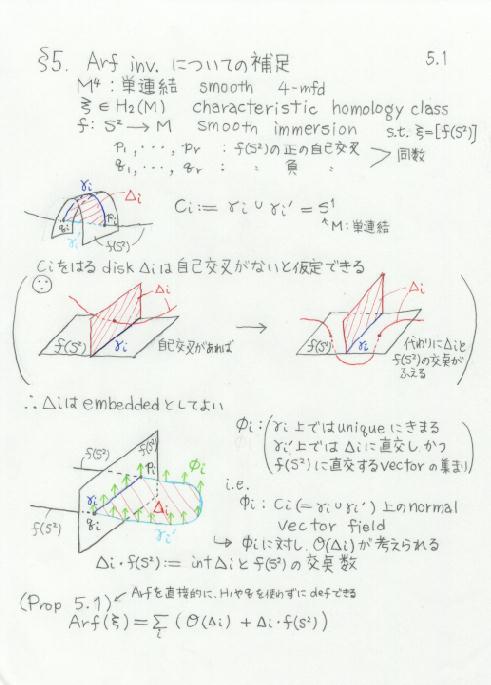 §5. Arf inv. についての補足 5.1
M⁴ : 単連結 smooth 4-mfd
ξ ∈ H₂(M) characteristic homology class
f: S² → M smooth immersion s.t. ξ=[f(S²)]
p₁, ･･･, pr : f(S²)の正の自己交叉
q₁, ･･･, qr : 〃 負 〃
同数
γi Δi
qi pi
γi' f(S²)
Ci := γi ∪ γi' = S¹
↑M: 単連結
Ciをはる disk Δiは自己交叉がないと仮定できる
Δi Δi
f(S²) γi 自己交叉があれば → f(S²) γi 代わりにΔiと
f(S²)の交点が
ふえる
∴ Δiは embeddedとしてよい
f(S²) f(S²) pi ϕi
γi Δi
f(S²) qi γi'
ϕi : (γi 上では uniqueにきまる
γi' 上では Δiに直交しかつ
f(S²)に直交するvectorの集まり)
i.e.
ϕi : Ci (= γi ∪ γi') 上のnormal
vector field
↳ ϕiに対し、O(Δi)が考えられる
Δi・f(S²) := int Δiとf(S²)の交点数
(Prop 5.1) ↙ Arfを直接的に、H₁やqを使わずにdefできる
Arf(ξ) = Σi (O(Δi) + Δi・f(S²))